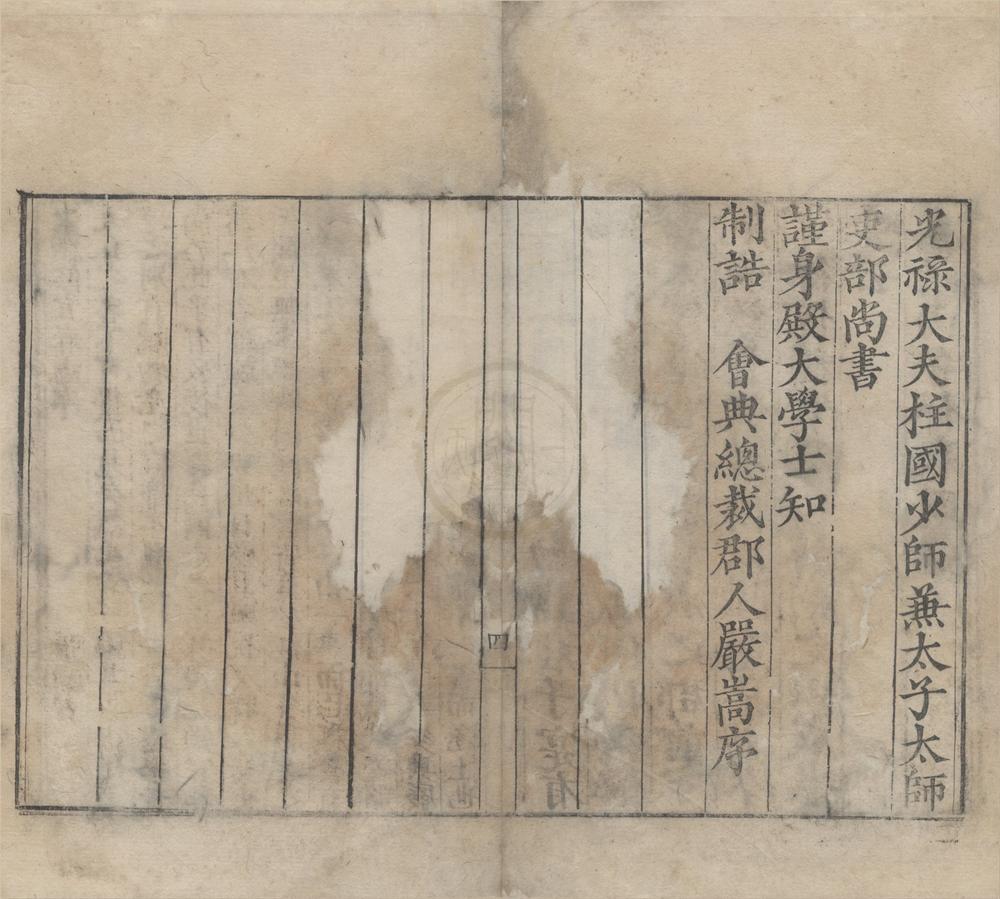 光祿大夫柱國少師兼太子太師
吏部尚書
謹身殿大學士知
制誥　會典總裁郡人嚴嵩序
四